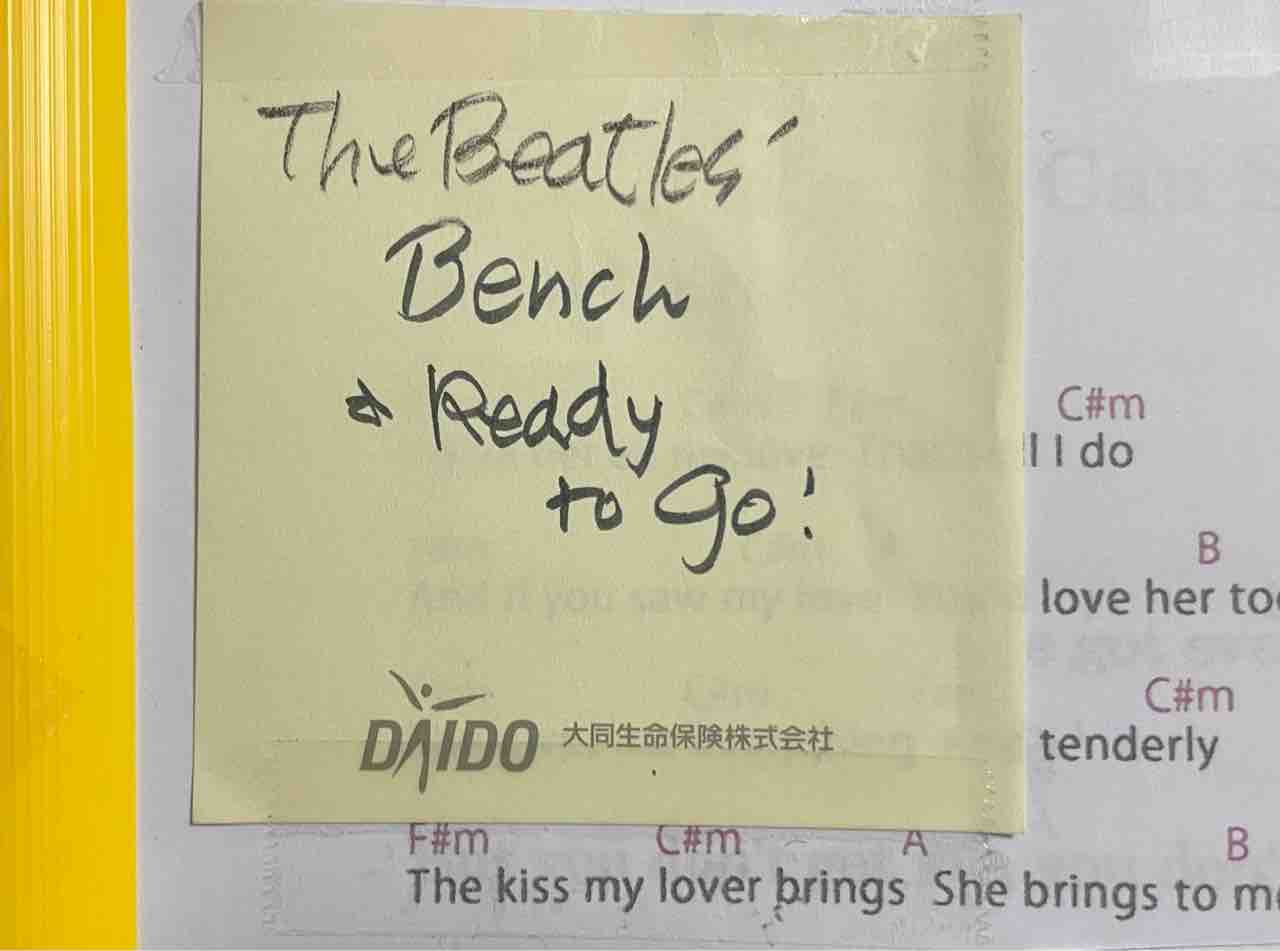 The Beatles'
Bench
→ Ready
to Go!
DAIDO 大同生命保険株式会社
C#m
l I do
B
love her too
C#m
tenderly
F#m C#m A B
The kiss my lover brings She brings to me